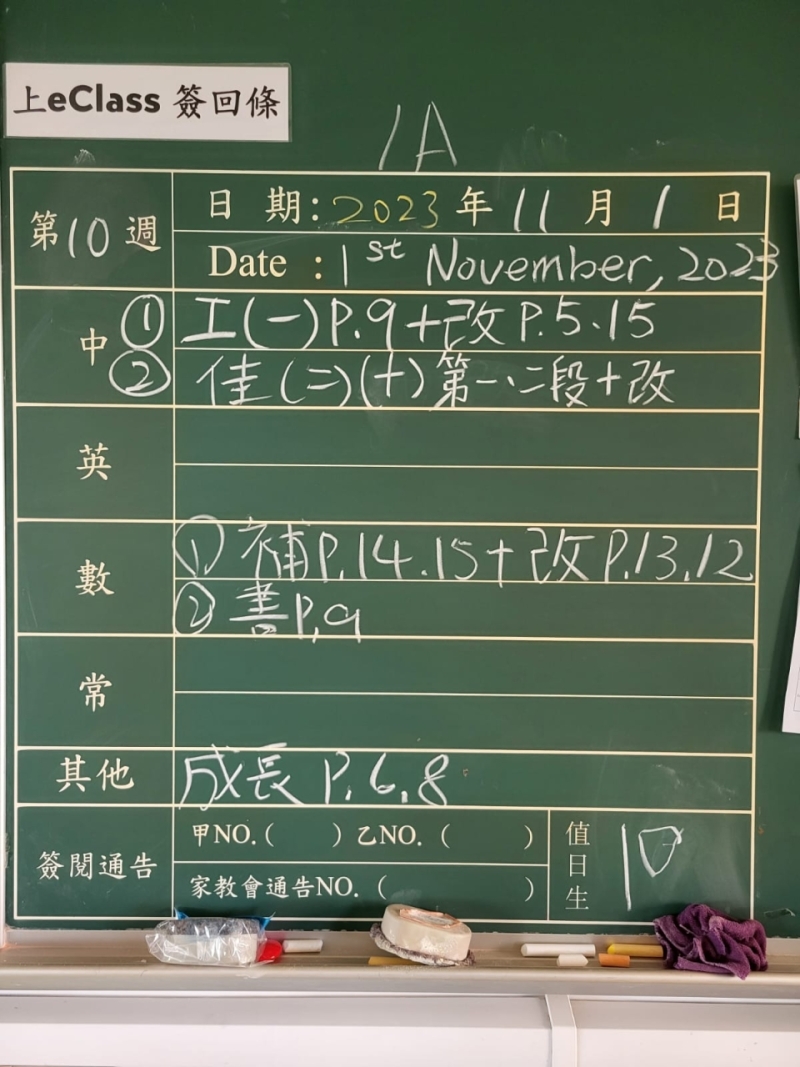 上eClass 簽回條
1A
第10週
日期:2023年11月1日
Date : 1st November, 2023
中 ① 工(一)P.9+改P.5.15
② 佳(二)(十)第一、二段+改
英
數 ① 補P.14.15+改P.13,12
② 書P.9
常
其他 成長 P.6,8
簽閱通告 甲NO.( ) 乙NO.( )
家教會通告NO.( )
值日生 10